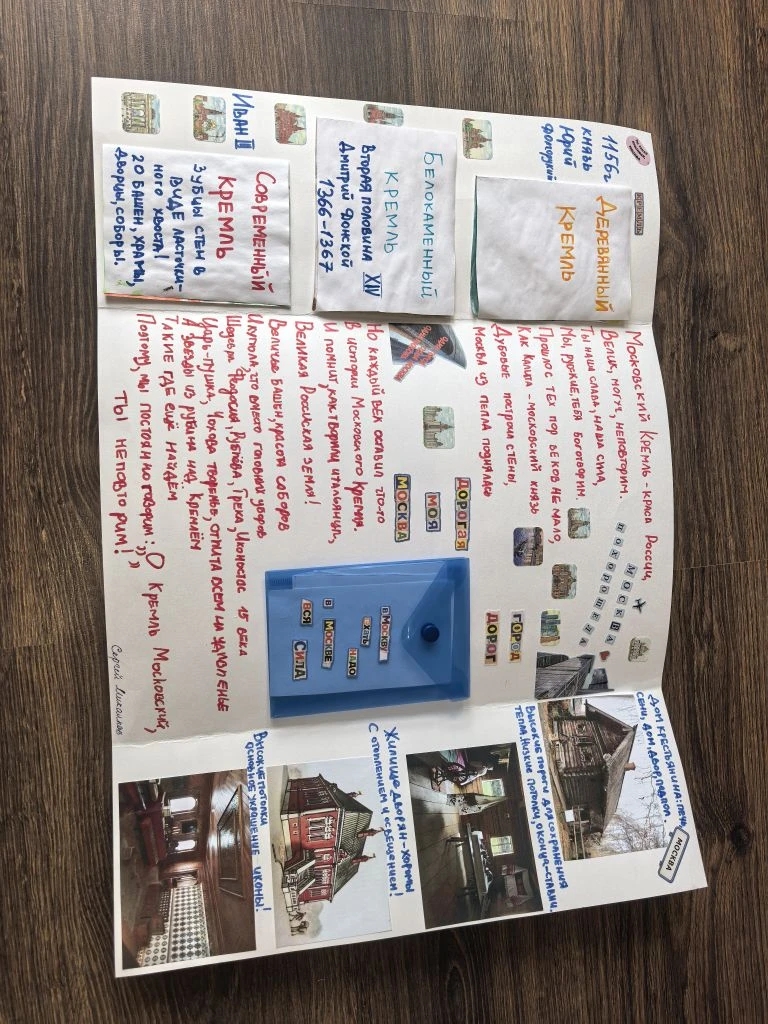 КРЕМЛЬ
1156г
князь
Юрий
Долгорукий
Деревянный
Кремль
Белокаменный
Кремль
Вторая половина XIV
Дмитрий Донской
1366-1367
Иван III
Современный
Кремль
Зубцы стен в
виде ласточки-
ного хвоста!
20 башен, храмы,
дворцы, соборы.
Московский Кремль - краса России,
Велик, могуч, неповторим.
Ты наша слава, наша сила,
Мы, русские, тебя боготворим.
Прошло с тех пор веков не мало,
Как Калита - московский князь
Дубовые построил стены,
Москва из пепла поднялась
Но каждый век оставил что-то
В истории Московского Кремля.
И помнит, как творили итальянцы,
Великая Российская земля!
Величье башен, красота соборов
И купола, что вместо головных уборов
Шедевры Феодосия, Рублёва, Грека, Иконостас 15 века
Царь-пушка,
А звезды из рубина над Кремлём
Такие где ещё найдём
Поэтому, мы постоянно говорим: "О Кремль Московский,
ты неповторим!"
Сергей
МОСКВА
ПОХОРОШЕЛА
ДОРОГАЯ
МОЯ
МОСКВА
ГОРОД
ДОРОГ
В МОСКВУ
ЕХАТЬ
НАДО
В
МОСКВЕ
ВСЯ
СИЛА
МОСКВА
Дом крестьянина: печь,
сени, дом, двор, подпол.
Высокие пороги для сохранения
тепла. Низкие потолки, оконца-ставни.
Жилище дворян - хоромы
с отоплением и освещением!
Высокие потолки
основное украшение иконы!